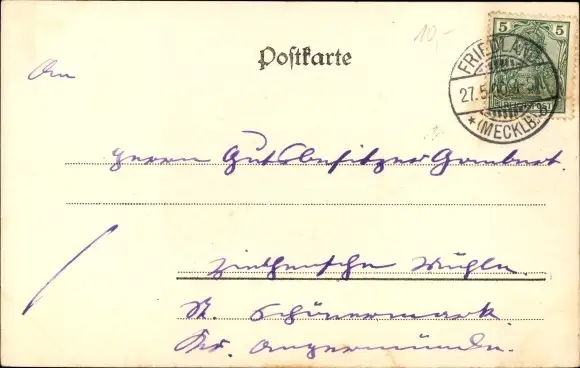 10,-
Postkarte
5 5
FRIEDLAND
27.5.
* (MECKLB.) b
An
Herrn Gutsbesitzer Gombert
Ziethensche Mühle
St. Schönermark.
Kr. Angermünde.